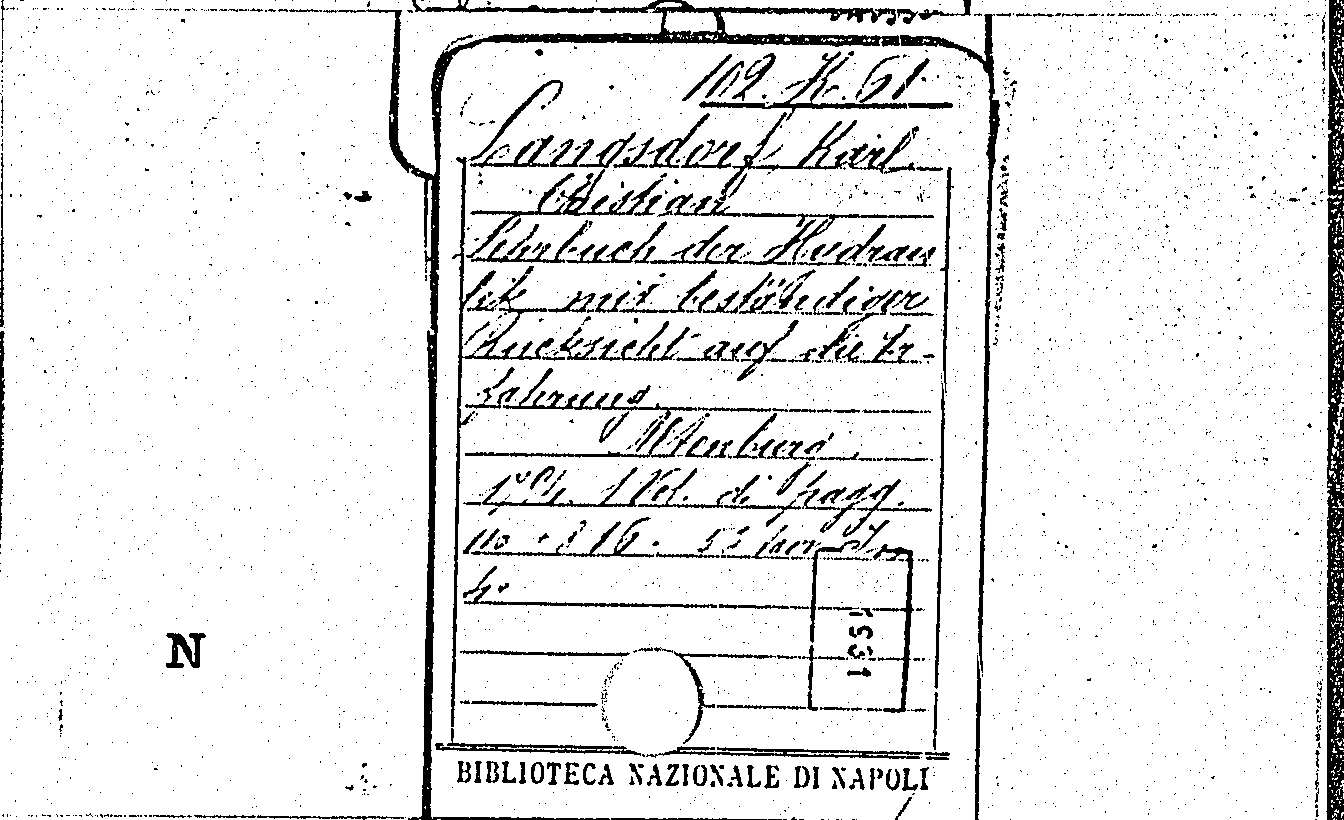 102. K. 61.
Langsdorf Karl
Christian
Lehrbuch der Hydrau
lik mit beständiger
Rücksicht auf die Er-
fahrung.
Altenburg,
1 Vol. di pagg.
316. 53 con
4°
1931
N
BIBLIOTECA NAZIONALE DI NAPOLI